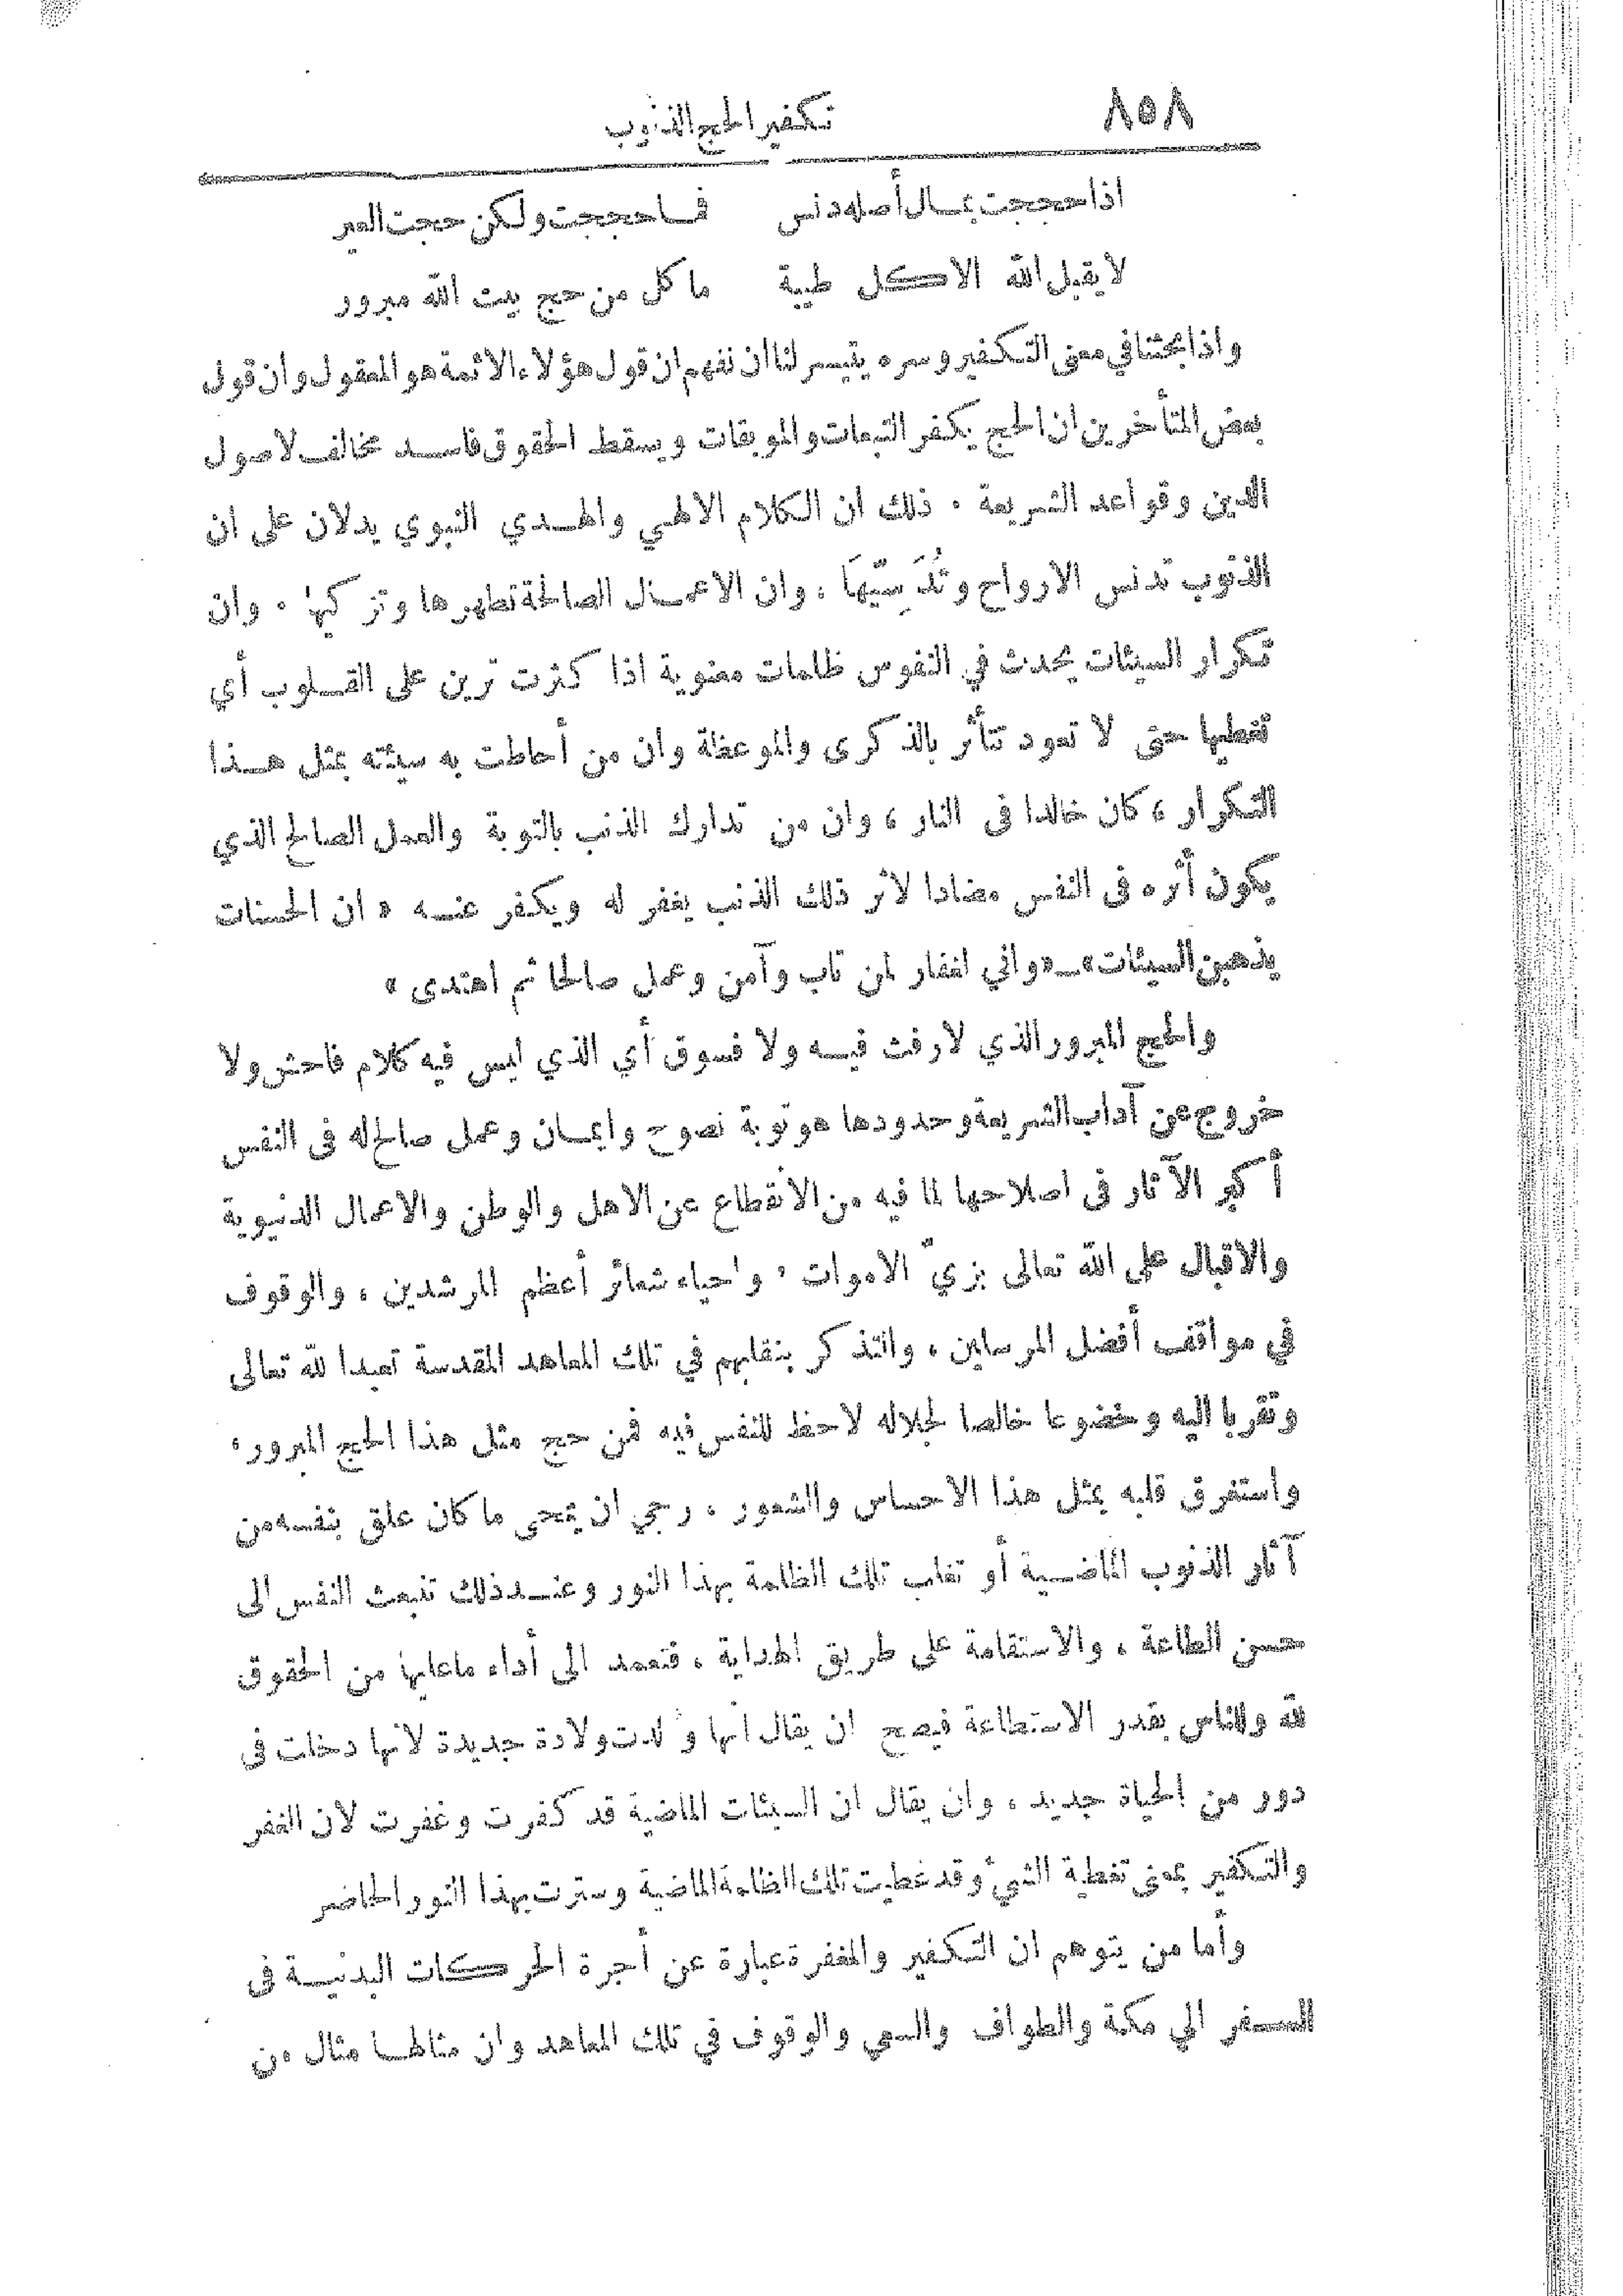 ٨٥٨
تكفير الحج الذنوب
اذا حججت بمال أصله دنس فما حججت ولكن حجت العير
لا يقبل الله الا كل طيبة ما كل من حج بيت الله مبرور
واذا بحثنا في معنى التكفير وسره يتيسر لنا ان نفهم ان قول هؤلاء الائمة هو المعقول وان قول
بعض المتأخرين ان الحج يكفر التبعات والموبقات ويسقط الحقوق فاسد مخالف لاصول
الدين وقواعد الشريعة . ذلك ان الكلام الالهي والهدي النبوي يدلان على ان
الذنوب تدنس الارواح وتُدَسِّيهَا ، وان الاعمال الصالحة تطهرها وتزكيها . وان
تكرار السيئات يحدث في النفوس ظلمات معنوية اذا كثرت ترين على القلوب أي
تغطيها حتى لا تعود تتأثر بالذكرى والموعظة وان من أحاطت به سيئته بمثل هذا
التكرار ، كان خالدا فى النار ، وان من تدارك الذنب بالتوبة والعمل الصالح الذي
يكون أثره فى النفس مضادا لاثر ذلك الذنب يغفر له ويكفر عنه « ان الحسنات
يذهبن السيئات» ــ «واني لغفار لمن تاب وآمن وعمل صالحا ثم اهتدى »
والحج المبرور الذي لا رفث فيه ولا فسوق أي الذي ليس فيه كلام فاحش ولا
خروج عن آداب الشريعة وحدودها هو توبة نصوح وايمان وعمل صالح له فى النفس
أكبر الآثار فى اصلاحها لما فيه من الانقطاع عن الاهل والوطن والاعمال الدنيوية
والاقبال على الله تعالى بزيّ الاموات ، واحياء شعائر أعظم المرشدين ، والوقوف
في مواقف أفضل المرسلين ، والتذكر بتقلبهم في تلك المعاهد المقدسة تعبدا لله تعالى
وتقربا اليه وخضوعا خالصا لجلاله لا حظ للنفس فيه فمن حج مثل هذا الحج المبرور ،
واستغرق قلبه بمثل هذا الاحساس والشعور ، رجي ان يمحى ما كان علق بنفسه من
آثار الذنوب الماضية أو تغلب تلك الظلمة بهذا النور وعند ذلك تنبعث النفس الى
حسن الطاعة ، والاستقامة على طريق الهداية ، فتعمد الى أداء ما عليها من الحقوق
لله وللناس بقدر الاستطاعة فيصح ان يقال انها ولدت ولادة جديدة لانها دخلت فى
دور من الحياة جديد ، وان يقال ان السيئات الماضية قد كفرت وغفرت لان الغفر
والتكفير بمعنى تغطية الشيء وقد غطيت تلك الظلمة الماضية وسترت بهذا النور الحاضر
وأما من يتوهم ان التكفير والمغفرة عبارة عن أجرة الحركات البدنية فى
السفر الى مكة والطواف والسعي والوقوف في تلك المعاهد وان مثالها مثال من